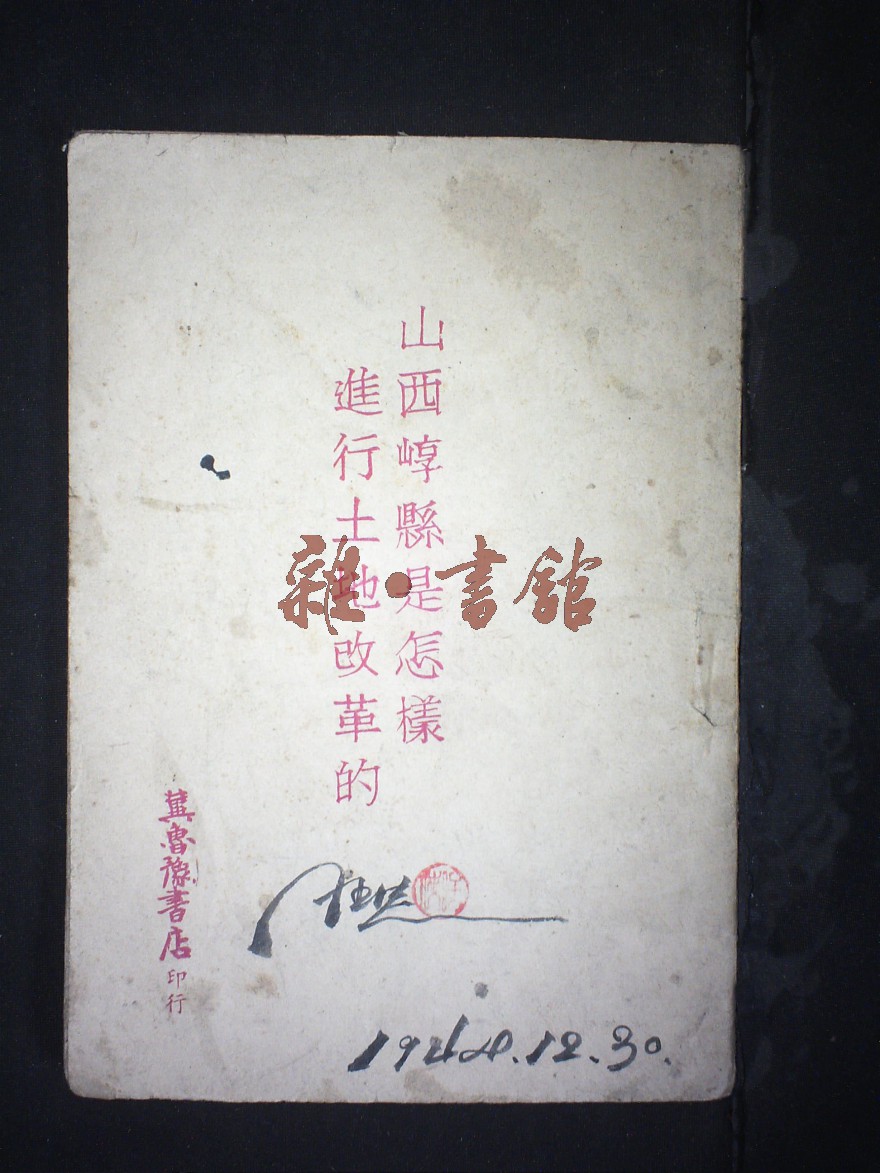 山西崞縣是怎樣
進行土地改革的
冀魯豫書店印行
雜·書館
12.30.